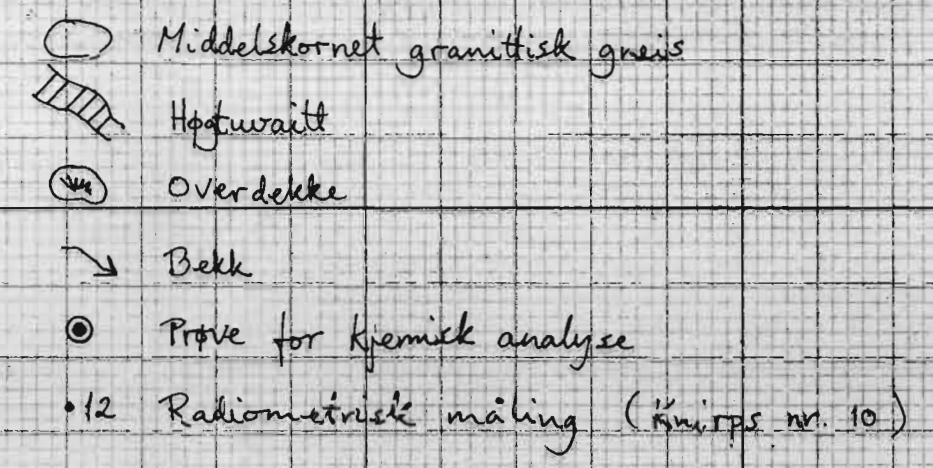 Middelskornet granittisk gneis
Høgtuvaitt
Overdekke
Bekk
Prøve for kjemisk analyse
•12 Radiometrisk måling (Knirps nr. 10)